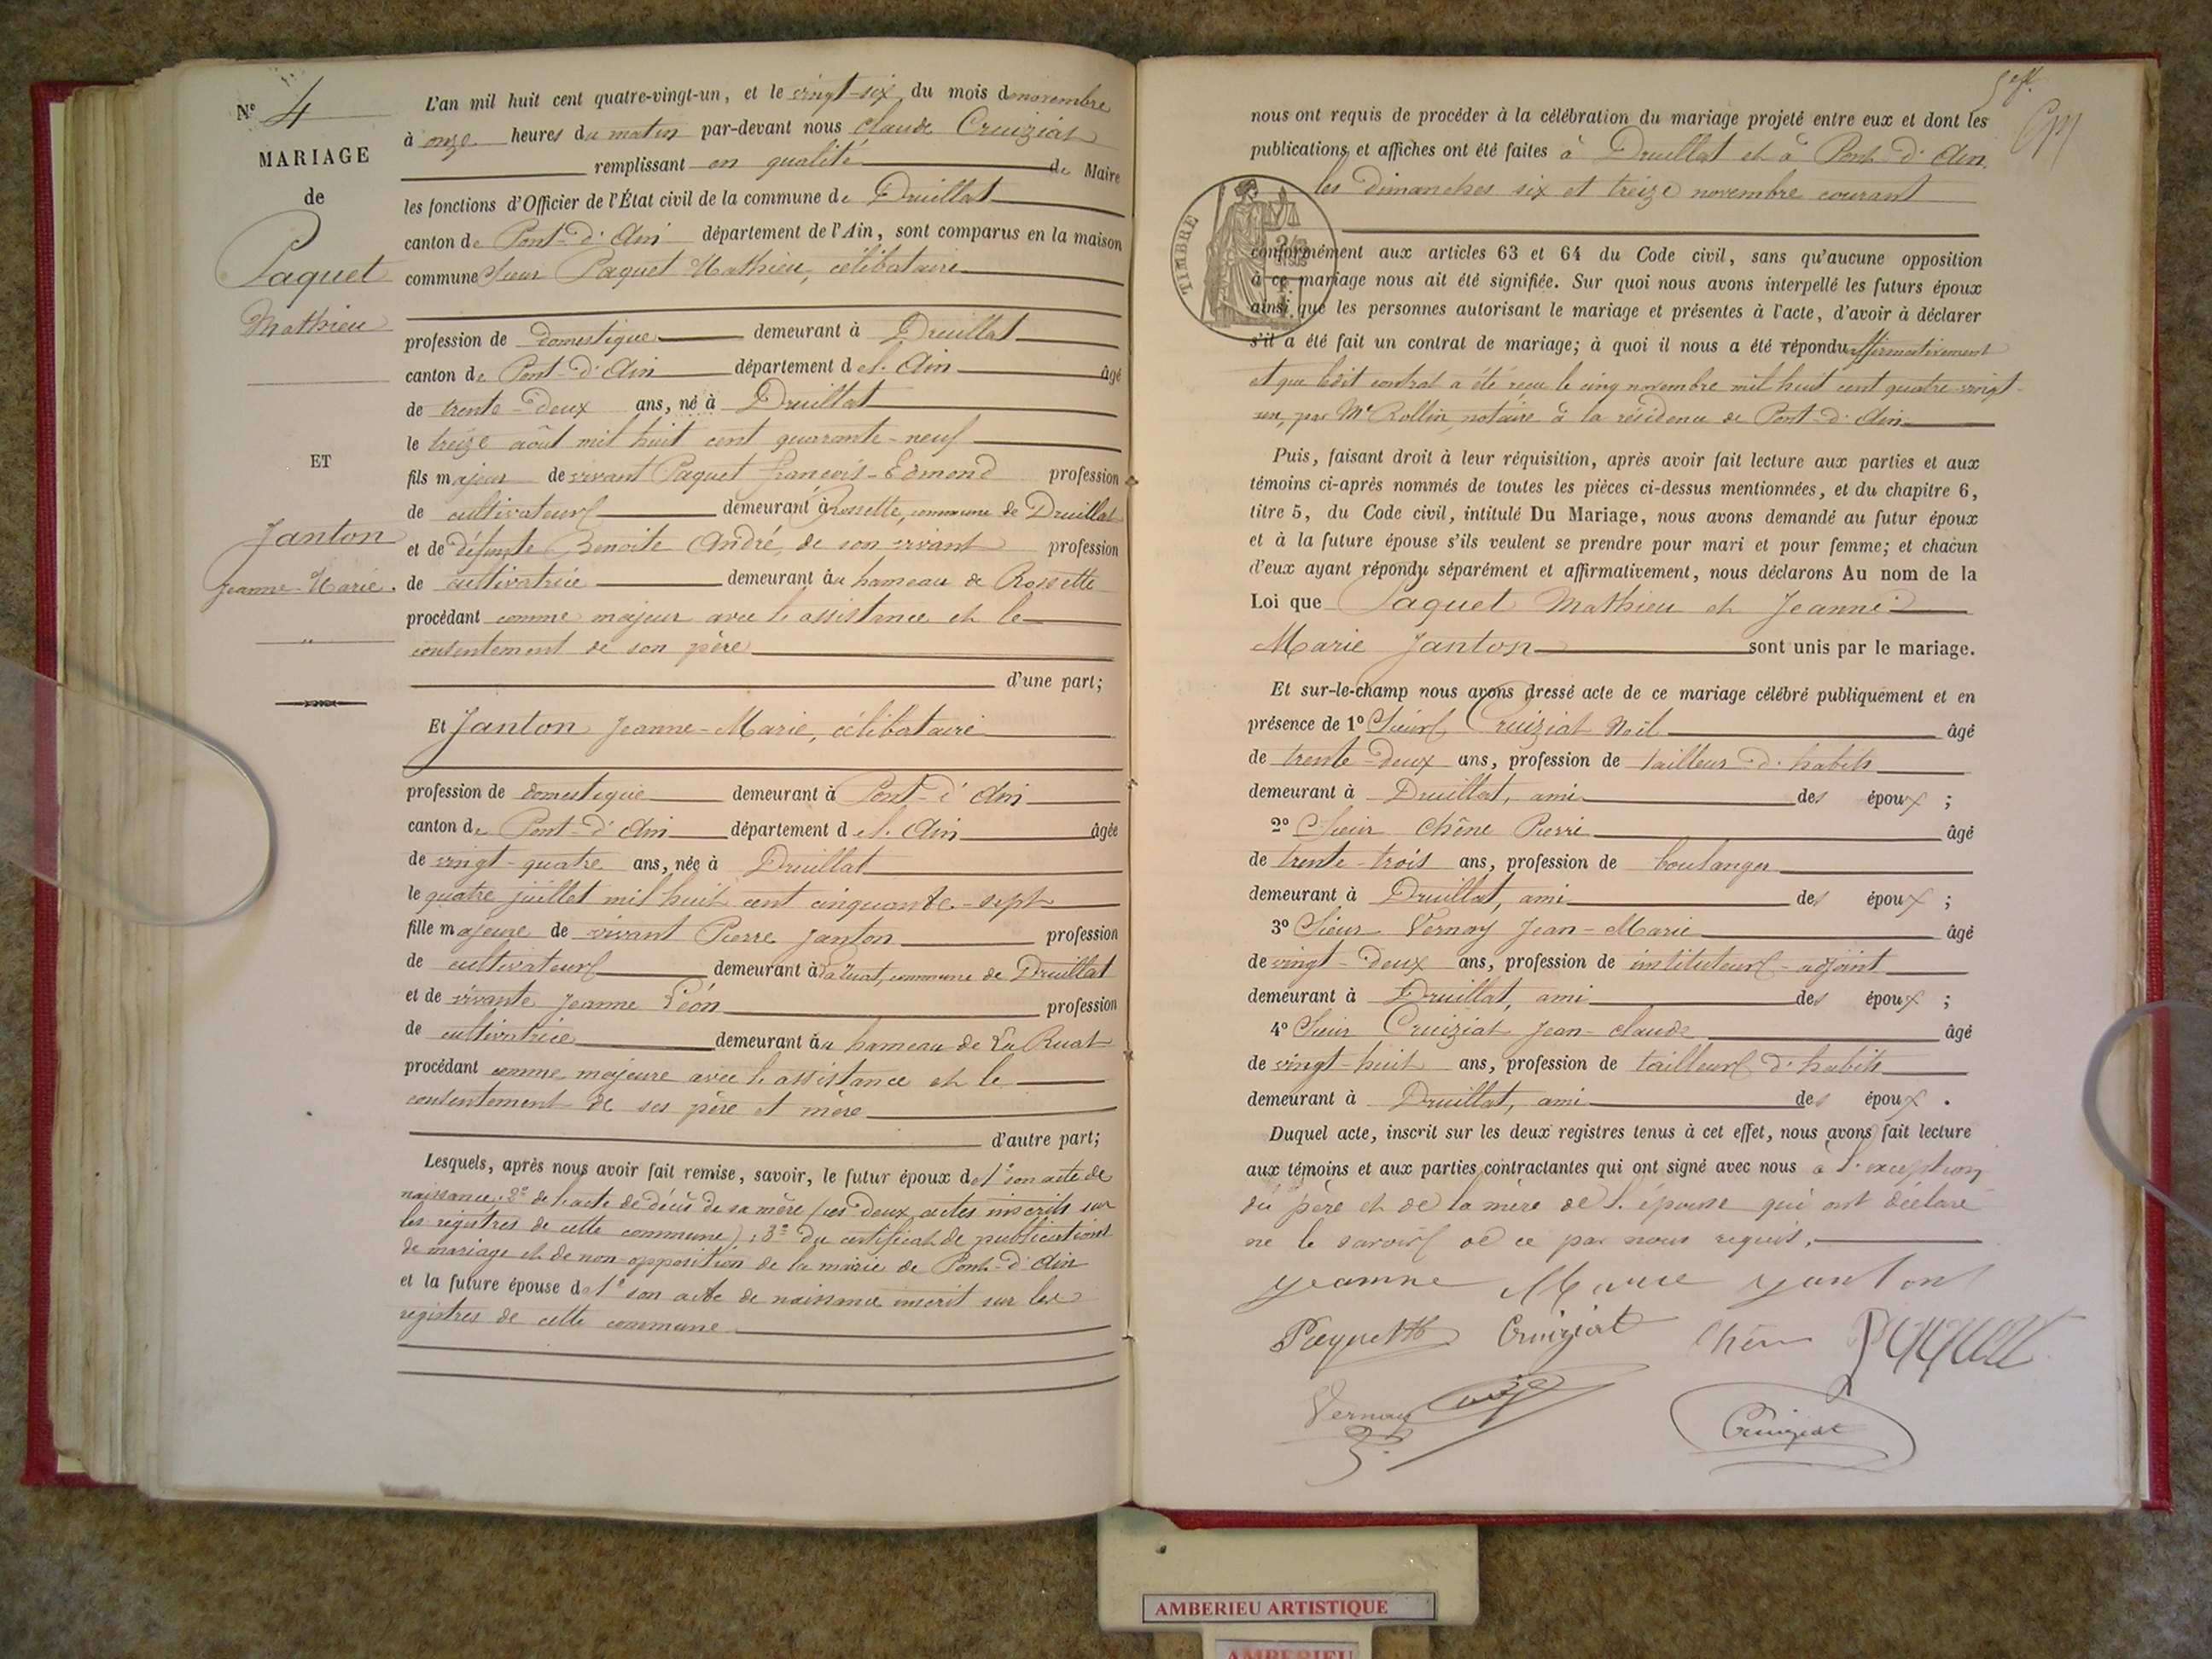 N° 4
MARIAGE
de
Paquet
Mathieu
ET
Janton
Jeanne-Marie.
L'an mil huit cent quatre-vingt-un, et le vingt-six du mois de novembre
à onze heures du matin par-devant nous Claude Cruiziat
remplissant en qualité de Maire
les fonctions d'Officier de l'État civil de la commune de Druillat
canton de Pont-d'Ain département de l'Ain, sont comparus en la maison
commune Sieur Paquet Mathieu, célibataire
profession de domestique demeurant à Druillat
canton de Pont-d'Ain département de l'Ain âgé
de trente-deux ans, né à Druillat
le treize août mil huit cent quarante-neuf
fils majeur de vivant Paquet François-Edmond profession
de cultivateur demeurant à Rossette, commune de Druillat
et de défunte Benoite André, de son vivant profession
de cultivatrice demeurant au hameau de Rossette
procédant comme majeur avec l'assistance et le
consentement de son père
d'une part;
Et Janton Jeanne-Marie, célibataire
profession de domestique demeurant à Pont-d'Ain
canton de Pont-d'Ain département de l'Ain âgée
de vingt-quatre ans, née à Druillat
le quatre juillet mil huit cent cinquante-sept
fille majeure de vivant Pierre Janton profession
de cultivateur demeurant à La Ruat, commune de Druillat
et de vivante Jeanne Léon profession
de cultivatrice demeurant au hameau de La Ruat
procédant comme majeure avec l'assistance et le
consentement de ses père et mère
d'autre part;
Lesquels, après nous avoir fait remise, savoir, le futur époux de 1° son acte de
naissance; 2° de l'acte de décès de sa mère (ces deux actes inscrits sur
les registres de cette commune); 3° du certificat de publications
de mariage et de non-opposition de la mairie de Pont-d'Ain
et la future épouse de 1° son acte de naissance inscrit sur les
registres de cette commune
nous ont requis de procéder à la célébration du mariage projeté entre eux et dont les
publications et affiches ont été faites à Druillat et à Pont-d'Ain,
les dimanches six et treize novembre courant
TIMBRE
conformément aux articles 63 et 64 du Code civil, sans qu'aucune opposition
à ce mariage nous ait été signifiée. Sur quoi nous avons interpellé les futurs époux
ainsi que les personnes autorisant le mariage et présentes à l'acte, d'avoir à déclarer
s'il a été fait un contrat de mariage; à quoi il nous a été répondu affirmativement
et que ledit contrat a été reçu le cinq novembre mil huit cent quatre-vingt-
un, par Me Rollin, notaire à la résidence de Pont-d'Ain
Puis, faisant droit à leur réquisition, après avoir fait lecture aux parties et aux
témoins ci-après nommés de toutes les pièces ci-dessus mentionnées, et du chapitre 6,
titre 5, du Code civil, intitulé Du Mariage, nous avons demandé au futur époux
et à la future épouse s'ils veulent se prendre pour mari et pour femme; et chacun
d'eux ayant répondu séparément et affirmativement, nous déclarons Au nom de la
Loi que Paquet Mathieu et Jeanne-
Marie Janton sont unis par le mariage.
Et sur-le-champ nous avons dressé acte de ce mariage célébré publiquement et en
présence de 1° Sieur Cruiziat Noël âgé
de trente-deux ans, profession de tailleur d'habits
demeurant à Druillat, ami des époux ;
2° Sieur Chêne Pierre âgé
de trente-trois ans, profession de boulanger
demeurant à Druillat, ami des époux ;
3° Sieur Vernay Jean-Marie âgé
de vingt-deux ans, profession de instituteur-adjoint
demeurant à Druillat, ami des époux ;
4° Sieur Cruiziat Jean-Claude âgé
de vingt-huit ans, profession de tailleur d'habits
demeurant à Druillat, ami des époux .
Duquel acte, inscrit sur les deux registres tenus à cet effet, nous avons fait lecture
aux témoins et aux parties contractantes qui ont signé avec nous à l'exception
du père et de la mère de l'épouse qui ont déclaré
ne le savoir de ce par nous requis.
Jeanne Marie Janton
Paquet Cruiziat Chêne Paquet
Vernay
Cruiziat
AMBERIEU ARTISTIQUE
AMBERIEU